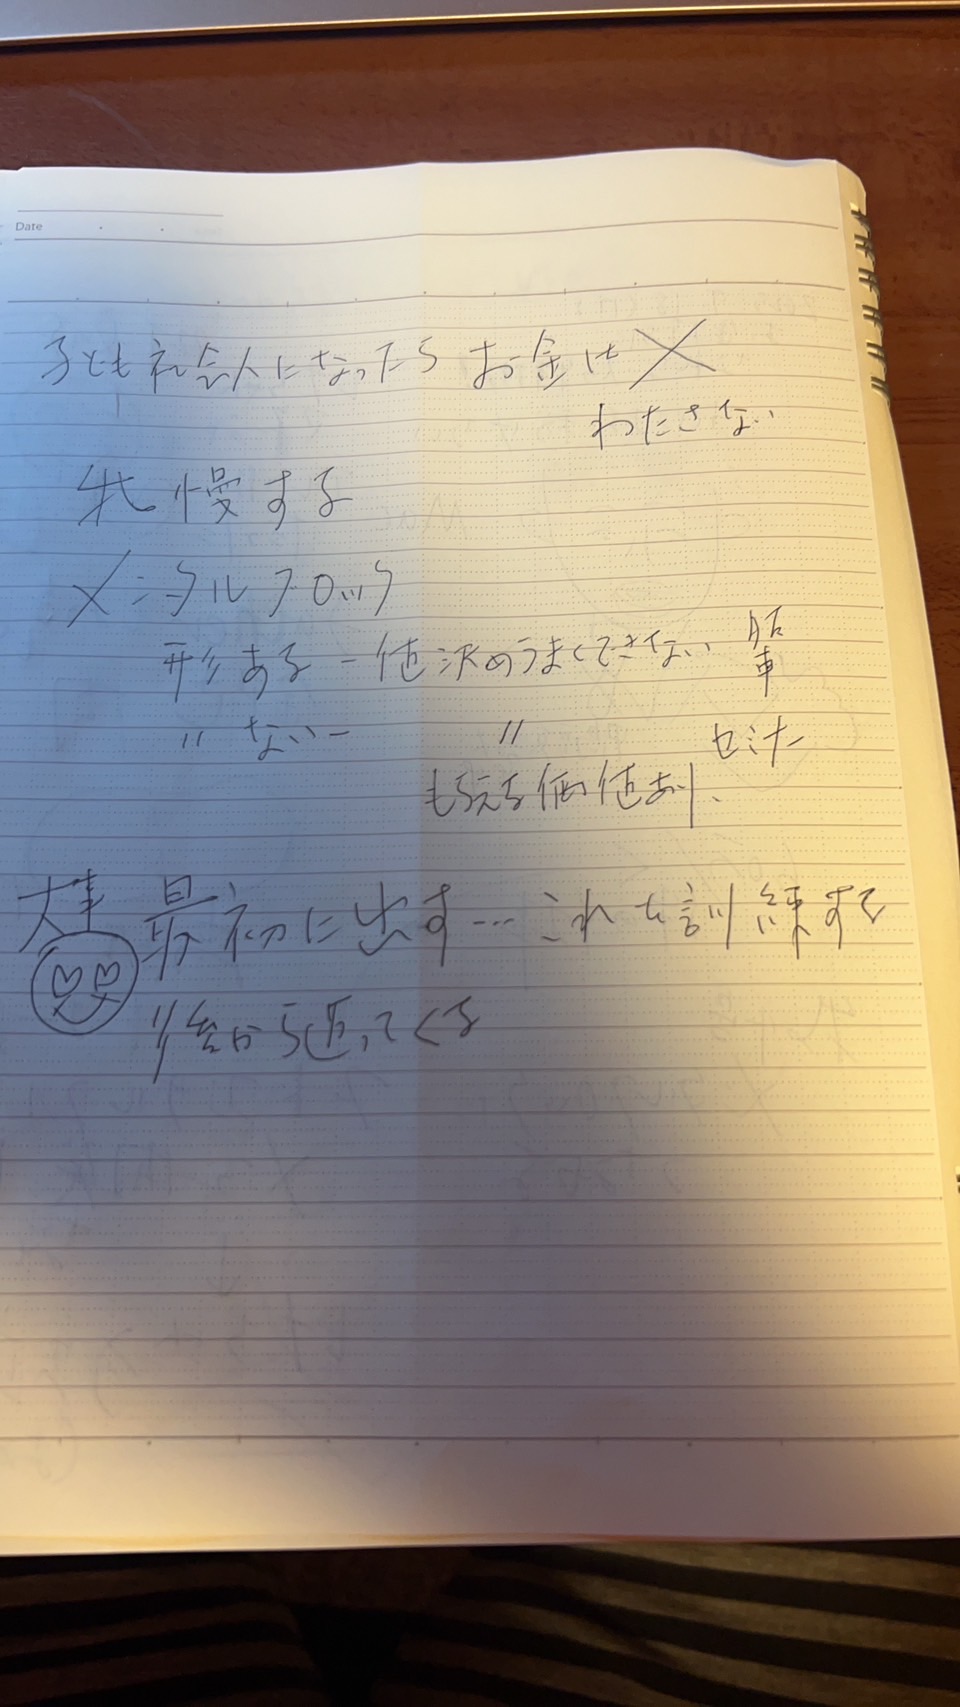 Date
子ども社会人になったら お金は ×
わたさない
我慢する
メンタルブロック
形ある － 値決めうまくできない 車
〃 ない － 〃 セミナー
もらえる価値あり、
大事 最初に出す… これを訓練する
後から返ってくる